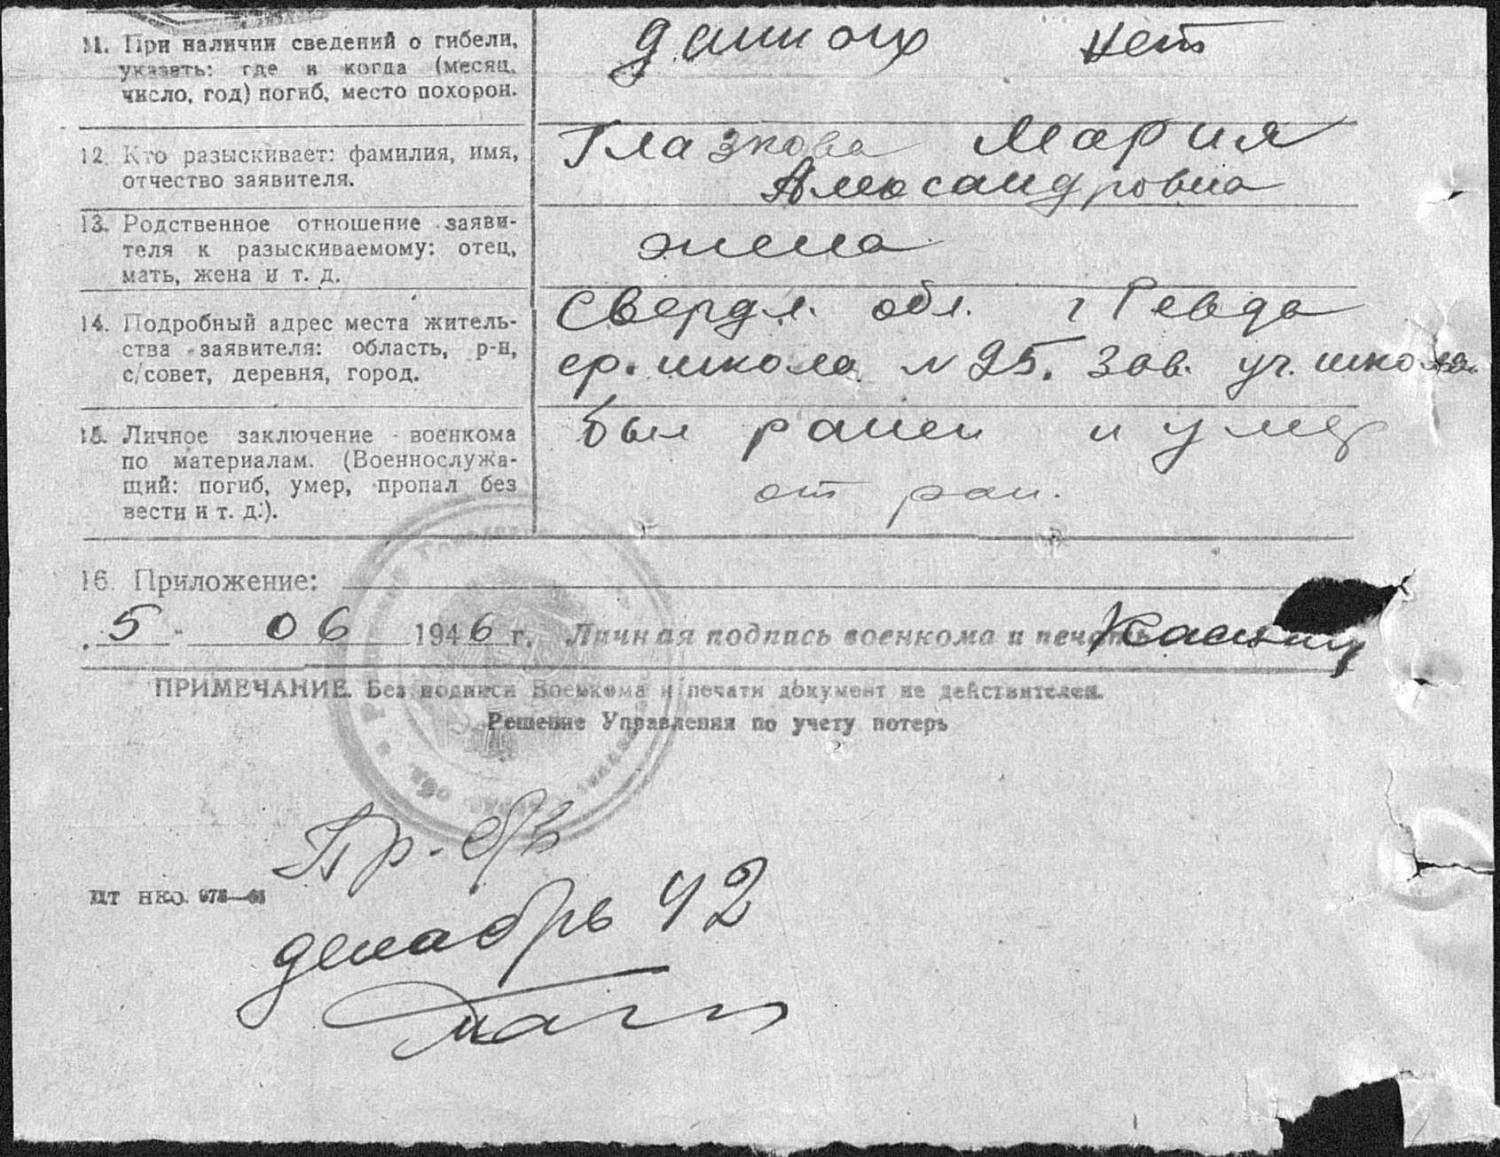 11. При наличии сведений о гибели,
указать: где и когда (месяц,
число, год) погиб, место похорон.
данных нет
12. Кто разыскивает: фамилия, имя,
отчество заявителя.
Глазкова Мария
Александровна
13. Родственное отношение заяви-
теля к разыскиваемому: отец,
мать, жена и т. д.
жена
14. Подробный адрес места житель-
ства заявителя: область, р-н,
с/совет, деревня, город.
Свердл. обл. г Ревда
ср. школа N 25. Зав. уч. школа
15. Личное заключение военкома
по материалам. (Военнослужа-
щий: погиб, умер, пропал без
вести и т. д.).
был ранен и умер
от ран.
16. Приложение:
5 06 1946 г. Личная подпись военкома и печать
ПРИМЕЧАНИЕ. Без подписи Военкома и печати документ не действителен.
Решение Управления по учету потерь
Пр. б/в
декабрь 42